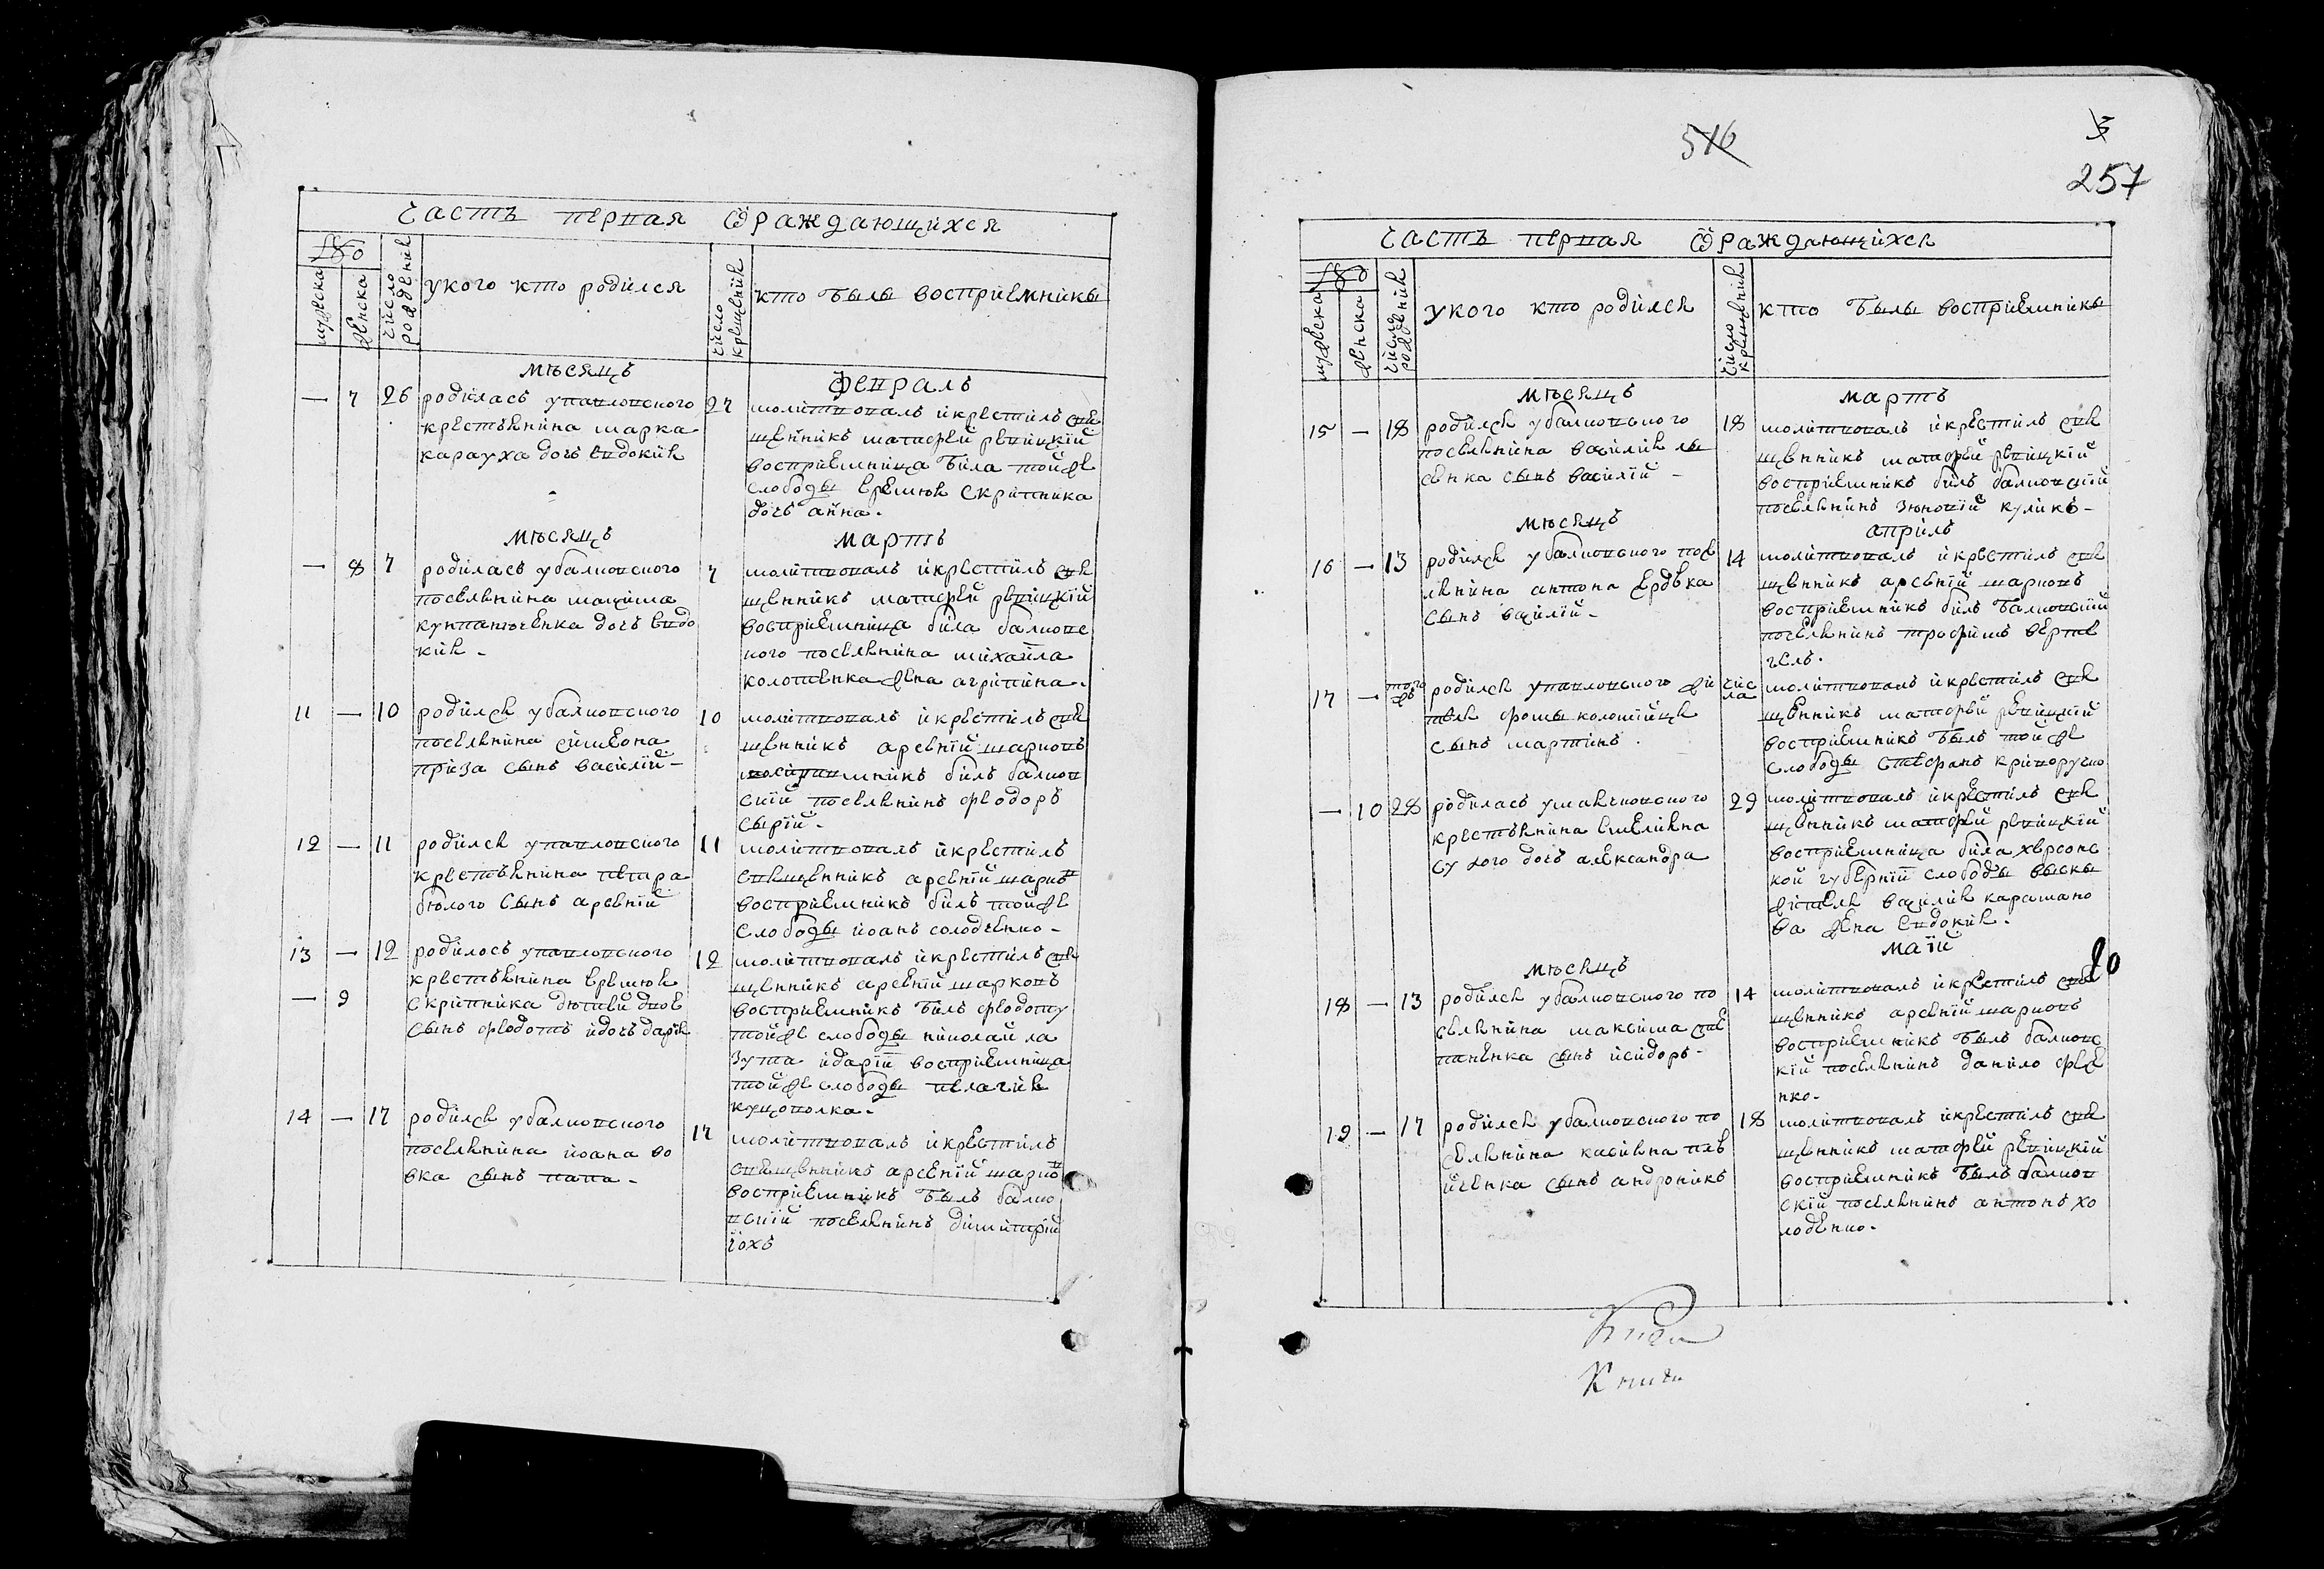 часть первая ѿраждающихся
мужеска
женска
число рожденія
укого кто родился
число крещенія
кто былы восприемникы
мѣсяцъ февраль
— 7 26 родилась упавловского
крестьянина марка
карауха дочь евдокія
27 молитвовалъ икрестилъ свя
щенникъ матфей ревицкій
восприемница была тойже
слободы еремѣя скрипника
дочь анна.
мѣсяцъ мартъ
— 8 7 родилась убалковского
поселянина максима
дочь евдо
кія -
7 молитвовалъ икрестилъ свя
щенникъ матфей ревицкій
восприемница била балковс
кого поселянина михаила
жена агрипина.
11 — 10 родился убалковского
поселянина симеона
приза сынъ василій -
10 молитвовалъ икрестилъ свя
щенникъ арсеній марковъ
билъ балков
скій поселянинъ феодоръ
сырій.
12 — 11 родился упавловского
крестьянина петра
бѣлого сынъ арсеній
11 молитвовалъ икрестилъ
священникъ арсеній марковъ
восприемникъ билъ тойже
слободы иоанъ солоденко -
13 — 12 родилось упавловского
крестьянина еремѣя
— 9 скрипника дѣтей двое
сынъ федотъ идочь дарія
12 молитвовалъ икрестилъ свя
щенникъ арсеній марковъ
восприемникъ билъ федоту
тойже слободы николай ла
зута идаріи восприемница
тойже слободы пелагія
14 — 17 родился убалковского
поселянина иоана во
вка сынъ -
17 молитвовалъ икрестилъ
священникъ арсеній марковъ
восприемникъ былъ балко
вскій поселянинъ димитрій
іохъ
516
257
часть первая ѿраждающихся
мужеска
женска
число рожденія
укого кто родился
число крещенія
кто былы восприемникы
мѣсяцъ мартъ
15 — 18 родился убалковского
поселянина василія лы
сенка сынъ василій -
18 молитвовалъ икрестилъ свя
щенникъ матфей ревицкій
восприемникъ билъ балковскій
поселянинъ зѣновій куликъ -
мѣсяцъ апріль
16 — 13 родился убалковского посе
лянина антона
сынъ василій -
14 молитвовалъ икрестилъ свя
щенникъ арсеній марковъ
восприемникъ билъ балковскій
поселянинъ трофимъ верте
гелъ.
17 — того жъ родился упавловского жи
теля фомы коломійця
сынъ мартинъ.
числа молитвовалъ икрестилъ свя
щенникъ матфей ревицкій
восприемникъ былъ тойже
слободы стефанъ криворучко
— 10 28 родилась
крестьянина емеліяна
сухого дочь александра
29 молитвовалъ икрестилъ свя
щенникъ матфей ревицкій
восприемница била херсонс
кой губерніи слободы выскы
жителя василія карамано
ва жена евдокія.
мѣсяцъ маій
18 — 13 родился убалковского по
селянина максима сте
паненка сынъ исидоръ -
14 молитвовалъ икрестилъ свя
щенникъ арсеній марковъ
восприемникъ былъ балковс
кій поселянинъ данило фед
нко.
19 — 17 родился убалковского по
селянина касіяна
сынъ андроникъ
18 молитвовалъ икрестилъ свя
щенникъ матфей ревицкій
восприемникъ былъ балков
скій поселянинъ антонъ хо
лоденко.
20